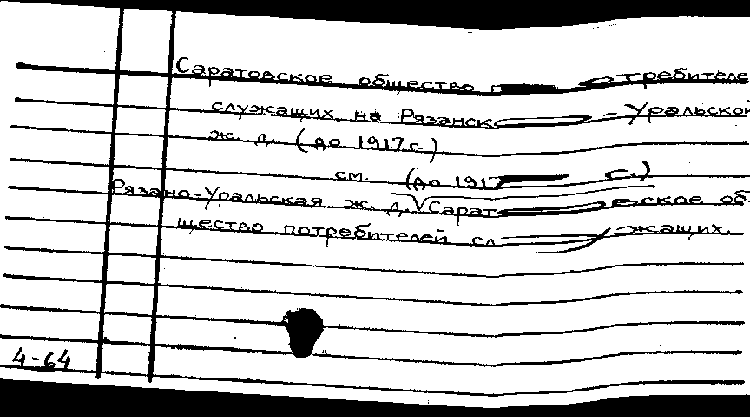 Саратовское общество потребителе
служащих на Рязанско-Уральской
ж. д. (до 1917 г.)
см. (до 1917 г.)
Рязано-Уральская ж. д. Саратовское об-
щество потребителей служащих.
4-64